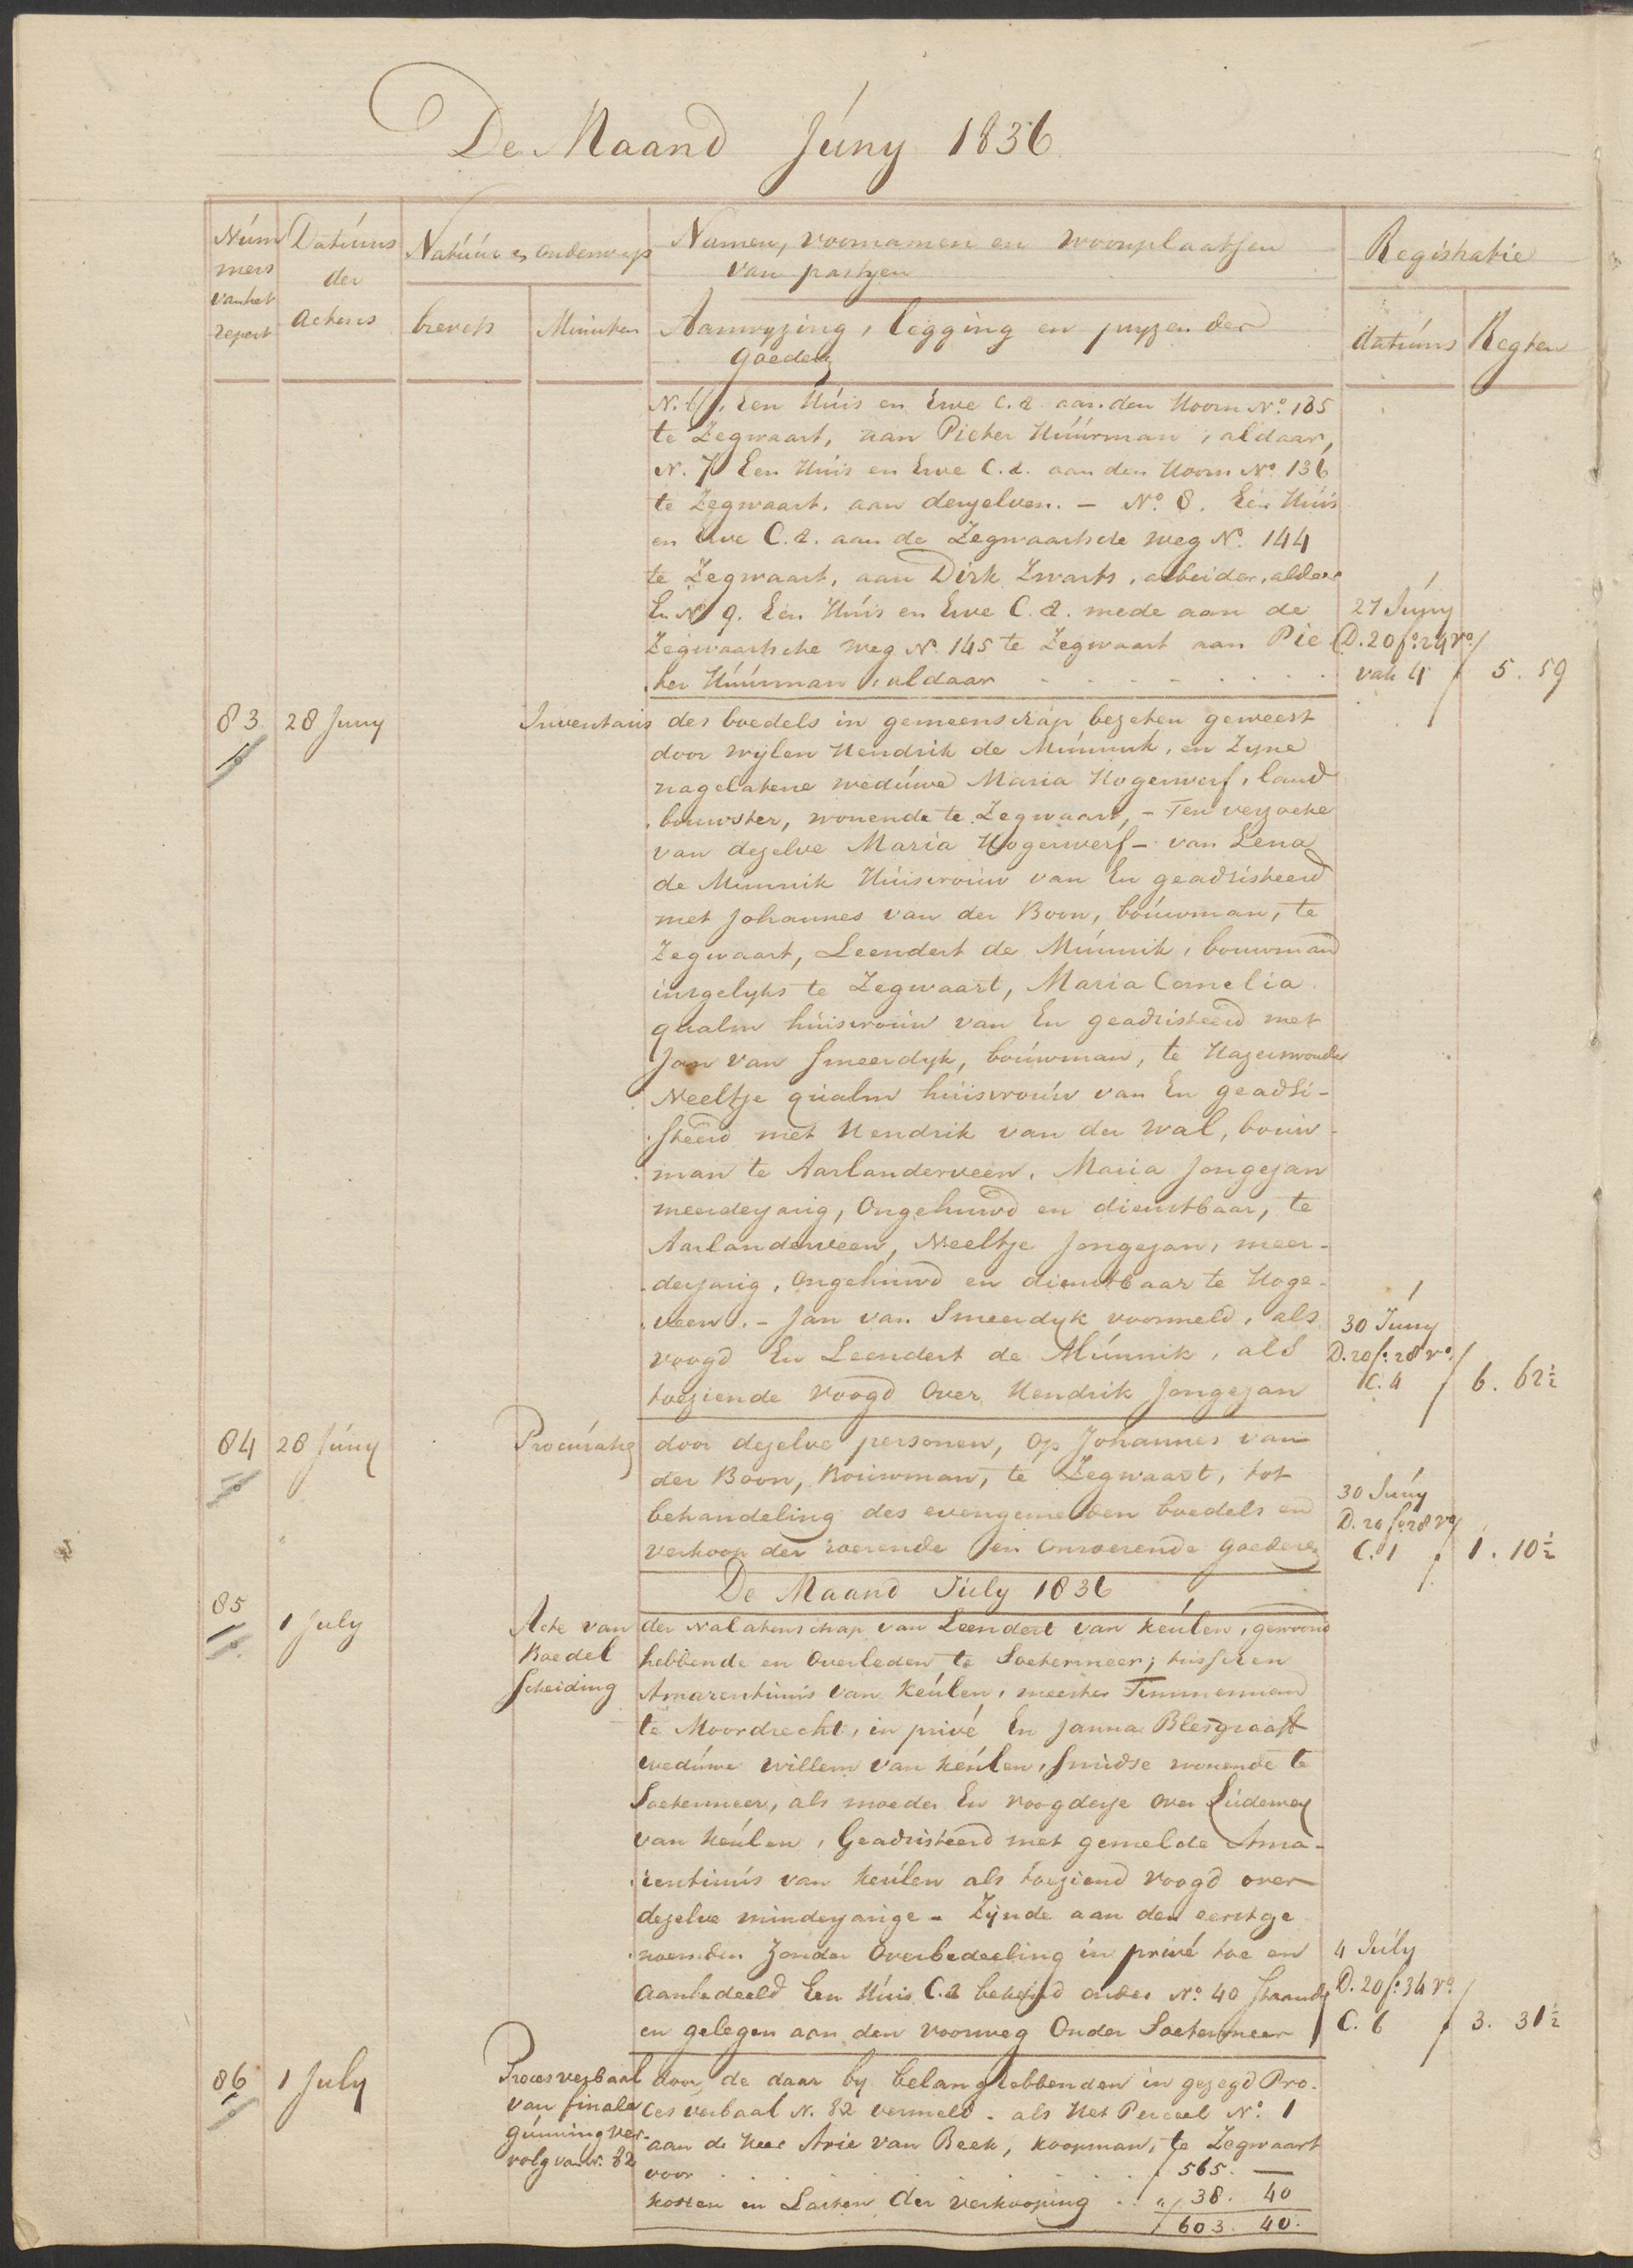 De Maand Júny 1836
Núm
mers
van het
repert
Datúms
der
Actens
Natúúr en onderwerp
brevets
Minuten
Namen, voornamen en woonplaatsen
van partyen
Aanwyzing, legging en pryzen der
goederen
Registratie
datúms
Regten
N. 6, een Húis en Erve C.a. aan den Hoorn No. 135
te Zegwaart, aan Pieter Húúrman, aldaar,
N. 7 Een Húis en Erve C.a. aan den Hoorn No. 136
te Zegwaart, aan denzelven. - No. 8. Een Húis
en Erve C.a. aan de Zegwaartsche weg No. 144
te Zegwaart, aan Dirk Zwarts, arbeider, aldaar
En N 9. Een Húis en Erve C.a. mede aan de
Zegwaartsche weg No. 145 te Zegwaart aan Pie
ter Húúrman, aldaar
27 Júny
D. 20 fo. 24 ro.
vak 4
5. 59
83
28 Juny
Inventaris
des boedels in gemeenschap bezeten geweest
door wylen Hendrik de Múnnik, en Zyne
nagelatene wedúwe Maria Hogerwerf, land
bouwster, wonende te Zegwaart, - Ten verzoeke
van dezelve Maria Hogerwerf - van Lena
de Munnik Húisvroúw van En geadsisteerd
met Johannes van der Boon, boúwman, te
Zegwaart, Leendert de Múnnik, bouwman
insgelyks te Zegwaart, Maria Cornelia
qualm húisvroúw van En geadsisteerd met
Jan van Smeerdyk, boúwman, te Hazerswoude
Neeltje qúalm húisvroúw van En geadsi-
steerd met Hendrik van der Wal, bouw-
man te Aarlanderveen, Maria Jongejan
meerderjarig, Ongehuwd en dienstbaar, te
Aarlanderveen, Neeltje Jongejan, meer-
derjarig, Ongehuwd en dienstbaar te Hoge-
veen. - Jan van Smeerdyk voormeld, als
voogd En Leendert de Múnnik, als
toeziende voogd Over Hendrik Jongejan
30 Juny
D. 20 fo. 28 vo.
C. 4
6. 62½
84
28 Júny
Procúratie
door dezelve personen, Op Johannes van
der Boon, Bouwman, te Zegwaart, tot
behandeling des evengemelden boedels en
verkoop der roerende en Onroerende goederen
30 Júny
D. 20 fo. 28 vo
C. 1
1. 10½
De Maand Júly 1836
85
1 July
Acte van
Boedel
scheiding
der Nalatenschap van Leendert van Keúlen, gewoond
hebbende en Overleden te Soetermeer; tusschen
Amarentinús van Keúlen, meester Timmerman
te Moordrecht, in privé En Janna Blesgraaft
wedúwe Willem van Keúlen, Smidse wonende te
Soetermeer, als moeder En voogdesje over Lúdewey
van Keúlen, Geadsisteerd met gemelde Ama-
rentinús van Keúlen als toeziend voogd over
dezelve minderjarige - Zijnde aan den eerstge
noemden Zonder Overbedeeling in privé toe en
aanbedeeld Een Húis C.a bekend onder No. 40 staande
en gelegen aan den voorweg Onder Soetermeer
4 Júly
D. 20 fo. 34 vo.
C. 6
3. 31½
86
1 July
Proces verbaal
van finale
gúnning ver-
volg van N. 82
door de daar by belanghebbenden in gezegd Pro-
ces verbaal N. 82 vermeld - als Het Perceel No. 1
aan de Heer Arie van Beek, koopman, te Zegwaart
voor ƒ 565. —
kosten en Lasten der verkooping „ 38. 40
ƒ 603. 40.